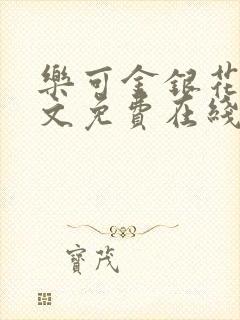 樂可金銀花
文免費在綫
寶茂